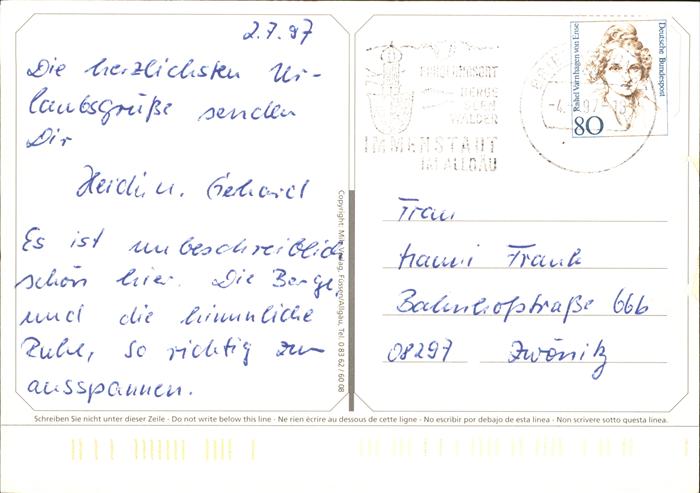 2.7.97
Die herzlichsten Ur-
laubsgrüße senden
Dir
Heidi u. Gerhard
Es ist unbeschreiblich
schön hier. Die Berge,
und die himmliche
Ruhe, so richtig zum
ausspannen.
Copyright: Mile Verlag, Füssen/Allgäu, Tel. 0 83 62 / 60 08
BERGE
SEEN
WÄLDER
IMMENSTADT
IM ALLGÄU
Rahel Varnhagen von Ense
Deutsche Bundespost
80
Frau
Hanni Frank
Bahnhofstraße 66b
08297 Zwönitz
Schreiben Sie nicht unter dieser Zeile - Do not write below this line - Ne rien écrire au dessous de cette ligne - No escribir por debajo de esta linea - Non scrivere sotto questa linea.